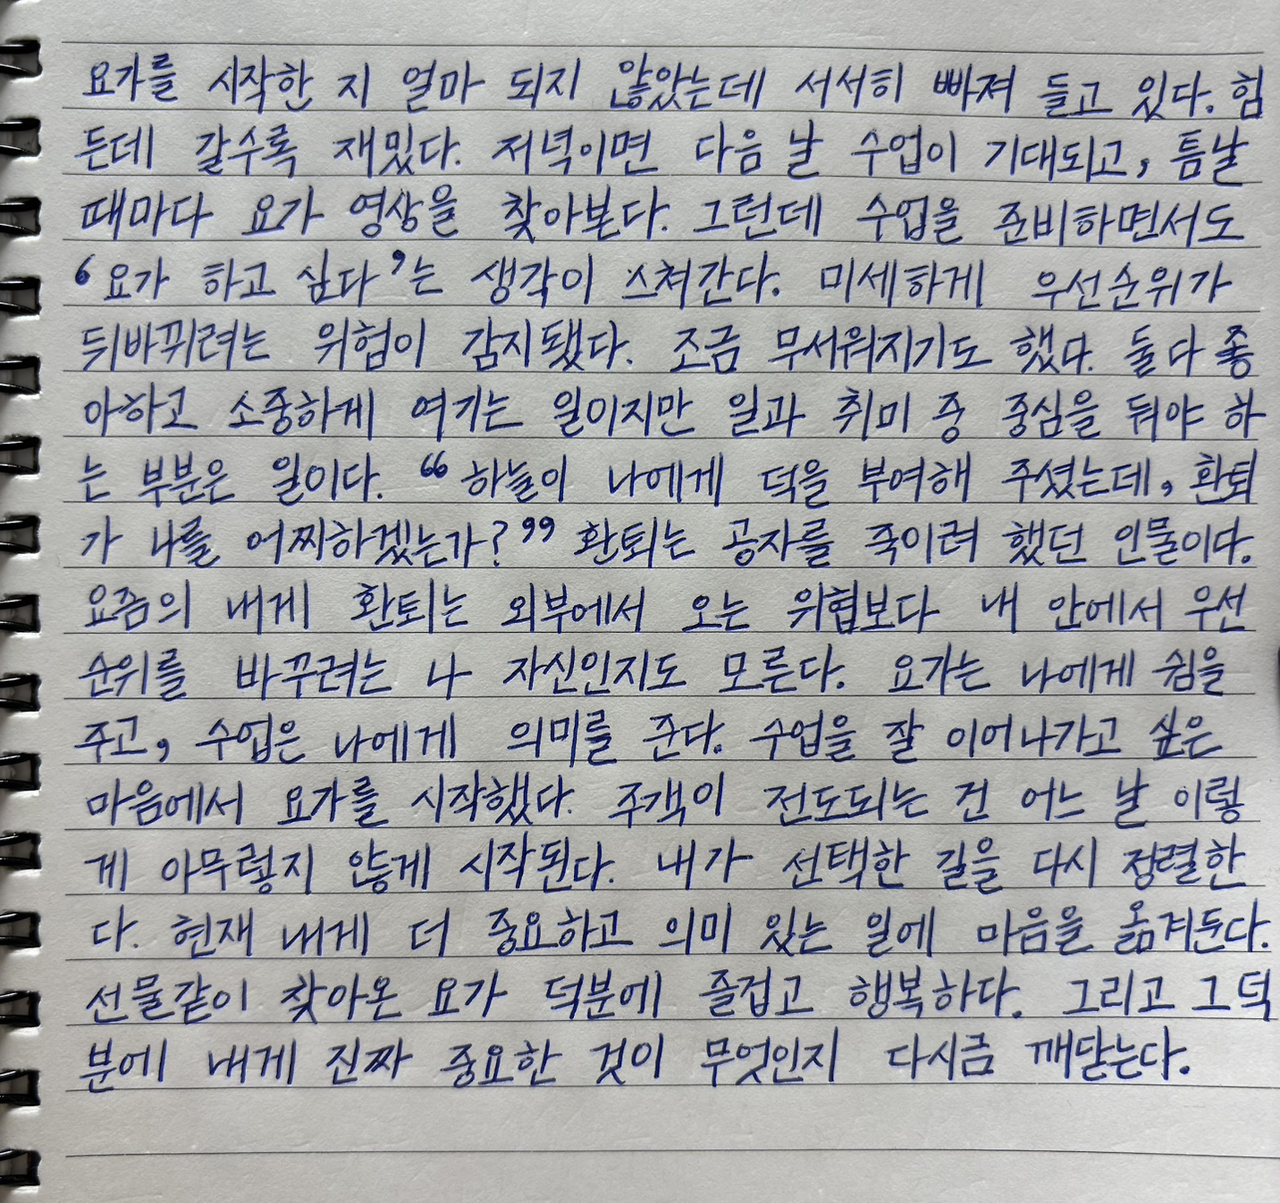 요가를 시작한 지 얼마 되지 않았는데 서서히 빠져 들고 있다. 힘
든데 갈수록 재밌다. 저녁이면 다음 날 수업이 기대되고, 틈날
때마다 요가 영상을 찾아본다. 그런데 수업을 준비하면서도
‘요가 하고 싶다’는 생각이 스쳐간다. 미세하게 우선순위가
뒤바뀌려는 위험이 감지됐다. 조금 무서워지기도 했다. 둘 다 좋
아하고 소중하게 여기는 일이지만 일과 취미 중 중심을 둬야 하
는 부분은 일이다. “하늘이 나에게 덕을 부여해 주셨는데, 환퇴
가 나를 어찌하겠는가?” 환퇴는 공자를 죽이려 했던 인물이다.
요즘의 내게 환퇴는 외부에서 오는 위협보다 내 안에서 우선
순위를 바꾸려는 나 자신인지도 모른다. 요가는 나에게 쉼을
주고, 수업은 나에게 의미를 준다. 수업을 잘 이어나가고 싶은
마음에서 요가를 시작했다. 주객이 전도되는 건 어느 날 이렇
게 아무렇지 않게 시작된다. 내가 선택한 길을 다시 정렬한
다. 현재 내게 더 중요하고 의미 있는 일에 마음을 옮겨둔다.
선물같이 찾아온 요가 덕분에 즐겁고 행복하다. 그리고 그 덕
분에 내게 진짜 중요한 것이 무엇인지 다시금 깨닫는다.